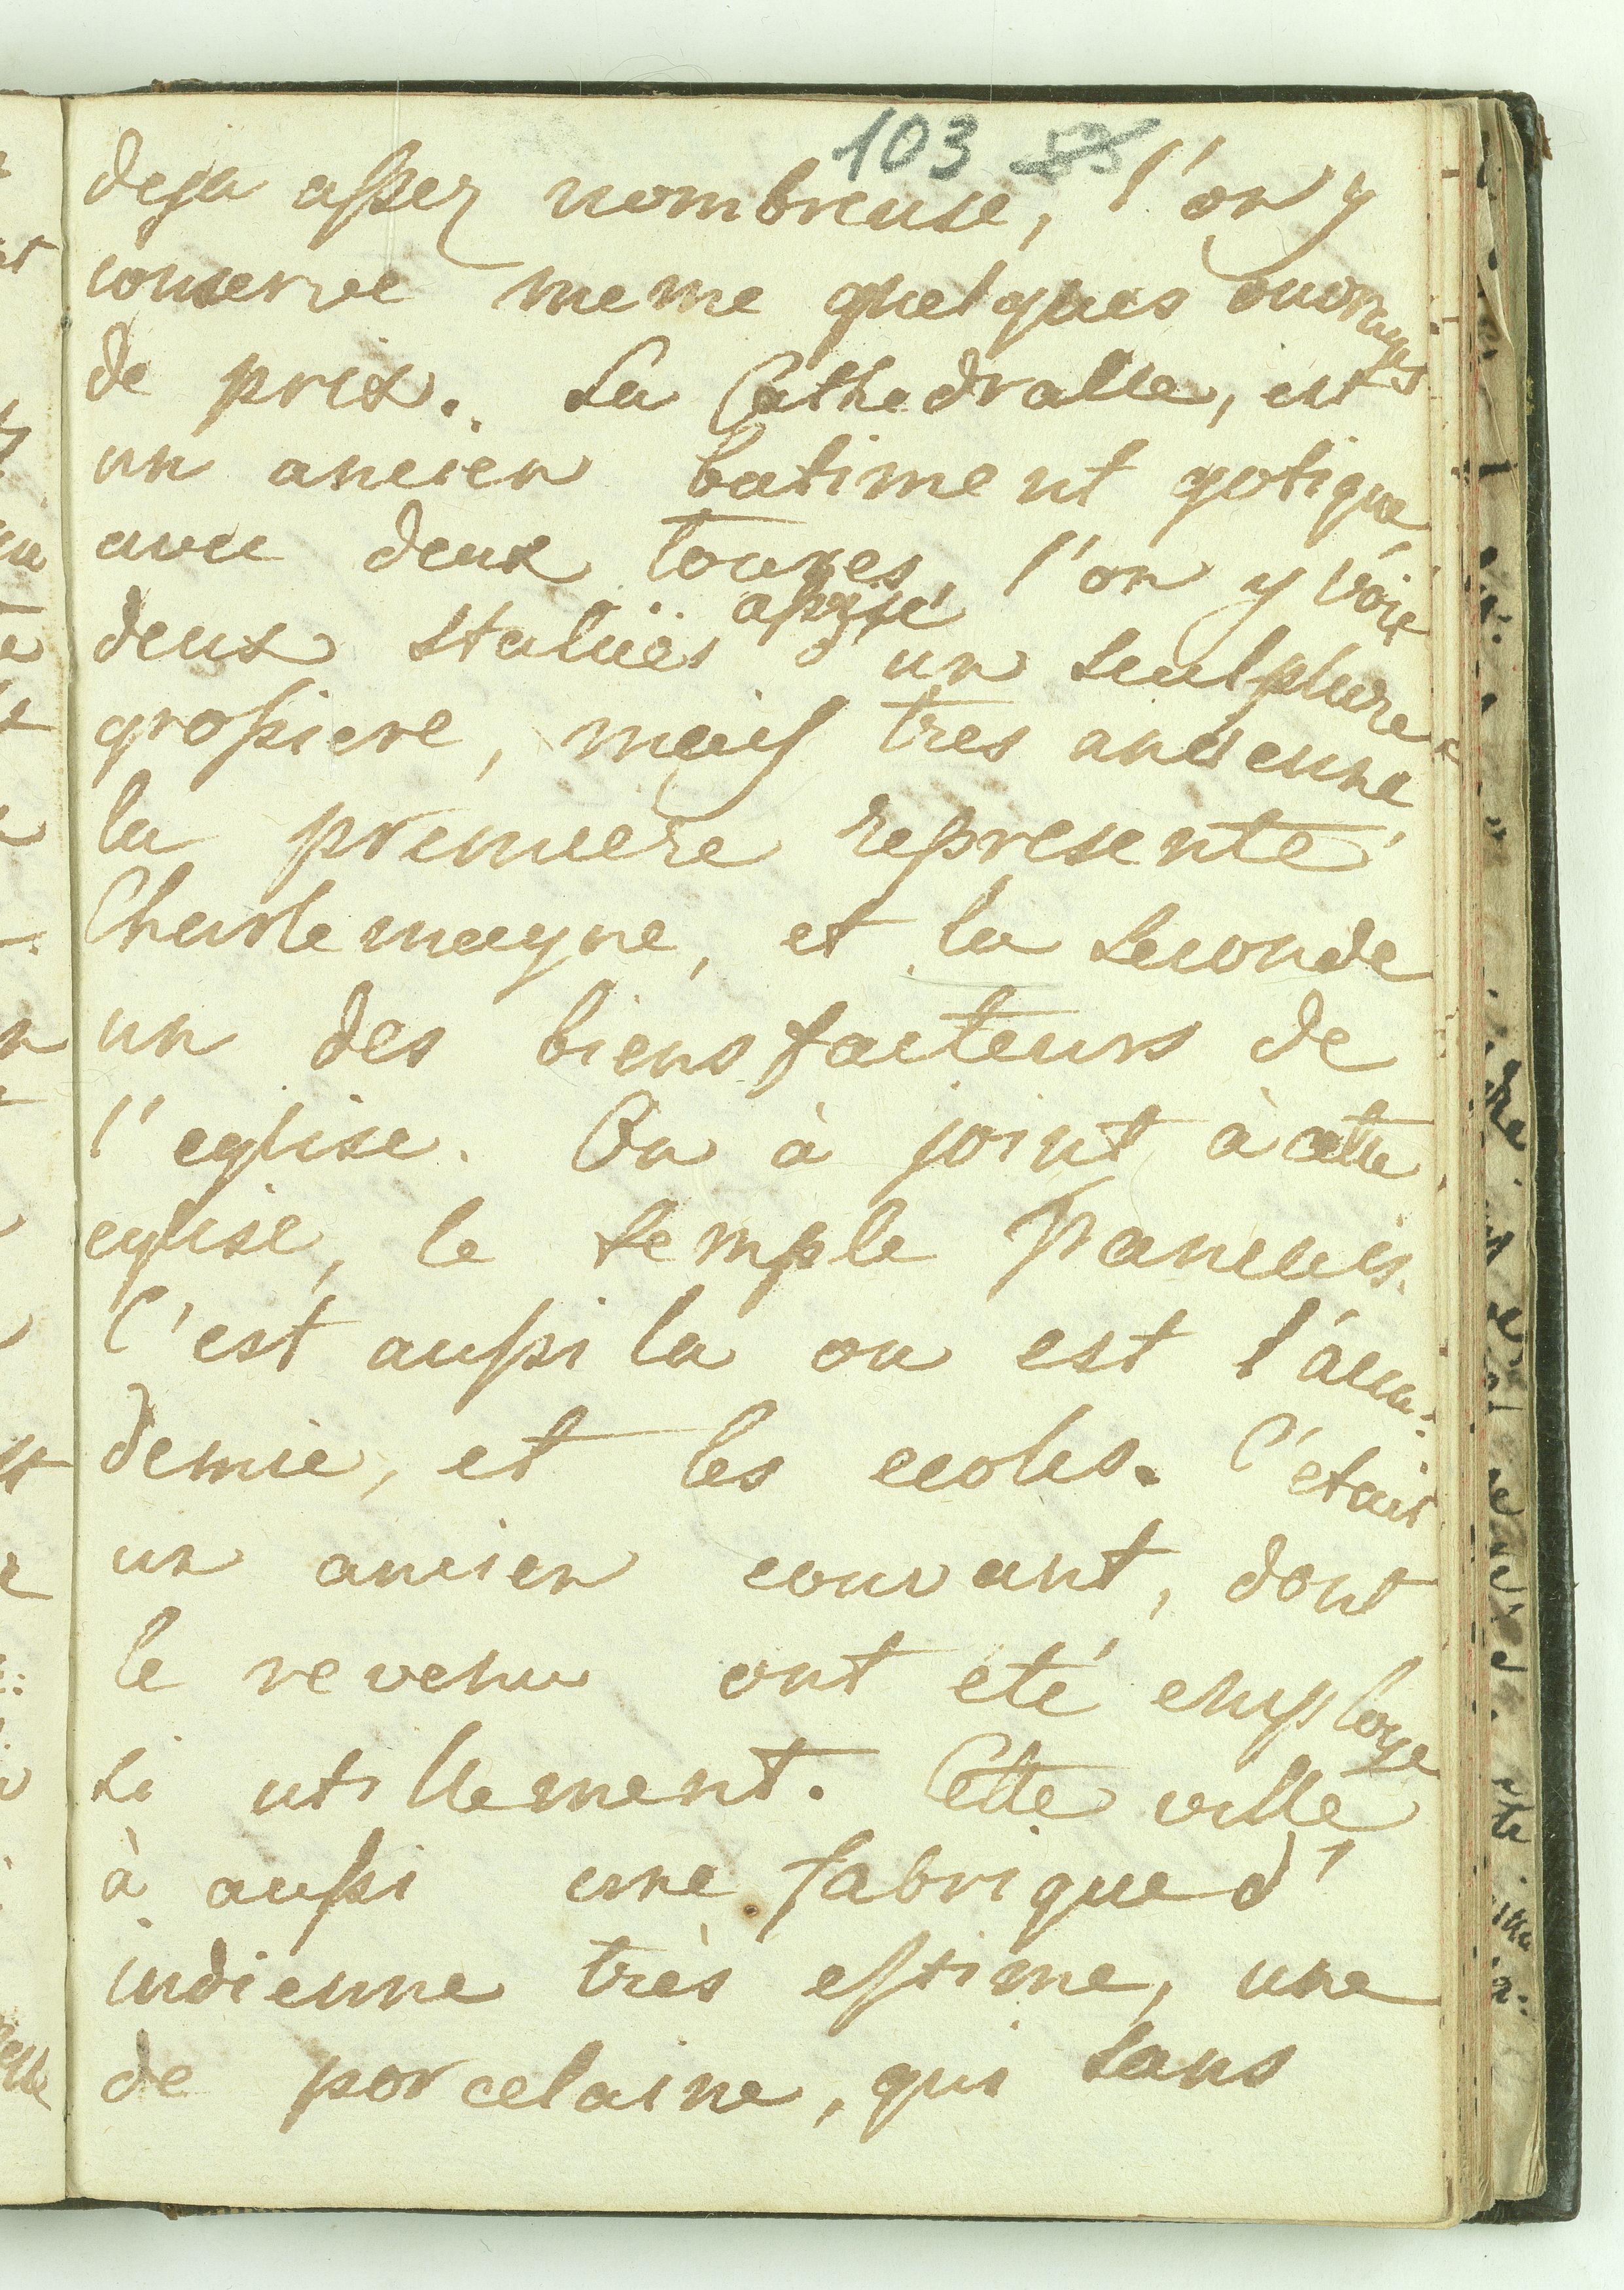 103 53
deja assez nombreuse, l'on y
conserve meme quelques ouvrages
de prix. La Cathedralle, est
un ancien batiment gotique
avec deux toures, l'on y voit
deux statües assise d'un sculpture
grossiere, mais tres ancienne
la premiere represente
Charlemagne, et la seconde
un des biensfacteurs de
l'eglise. On à joint à cette
eglise, le temple
C'est aussi la ou est l'aca-
demie, et les ecoles. C'etait
un ancien couvant, dont
le revenu ont eté employe
si utillement. Cette ville
à aussi une fabrique d'
indienne très estime, une
de porcelaine, qui sans